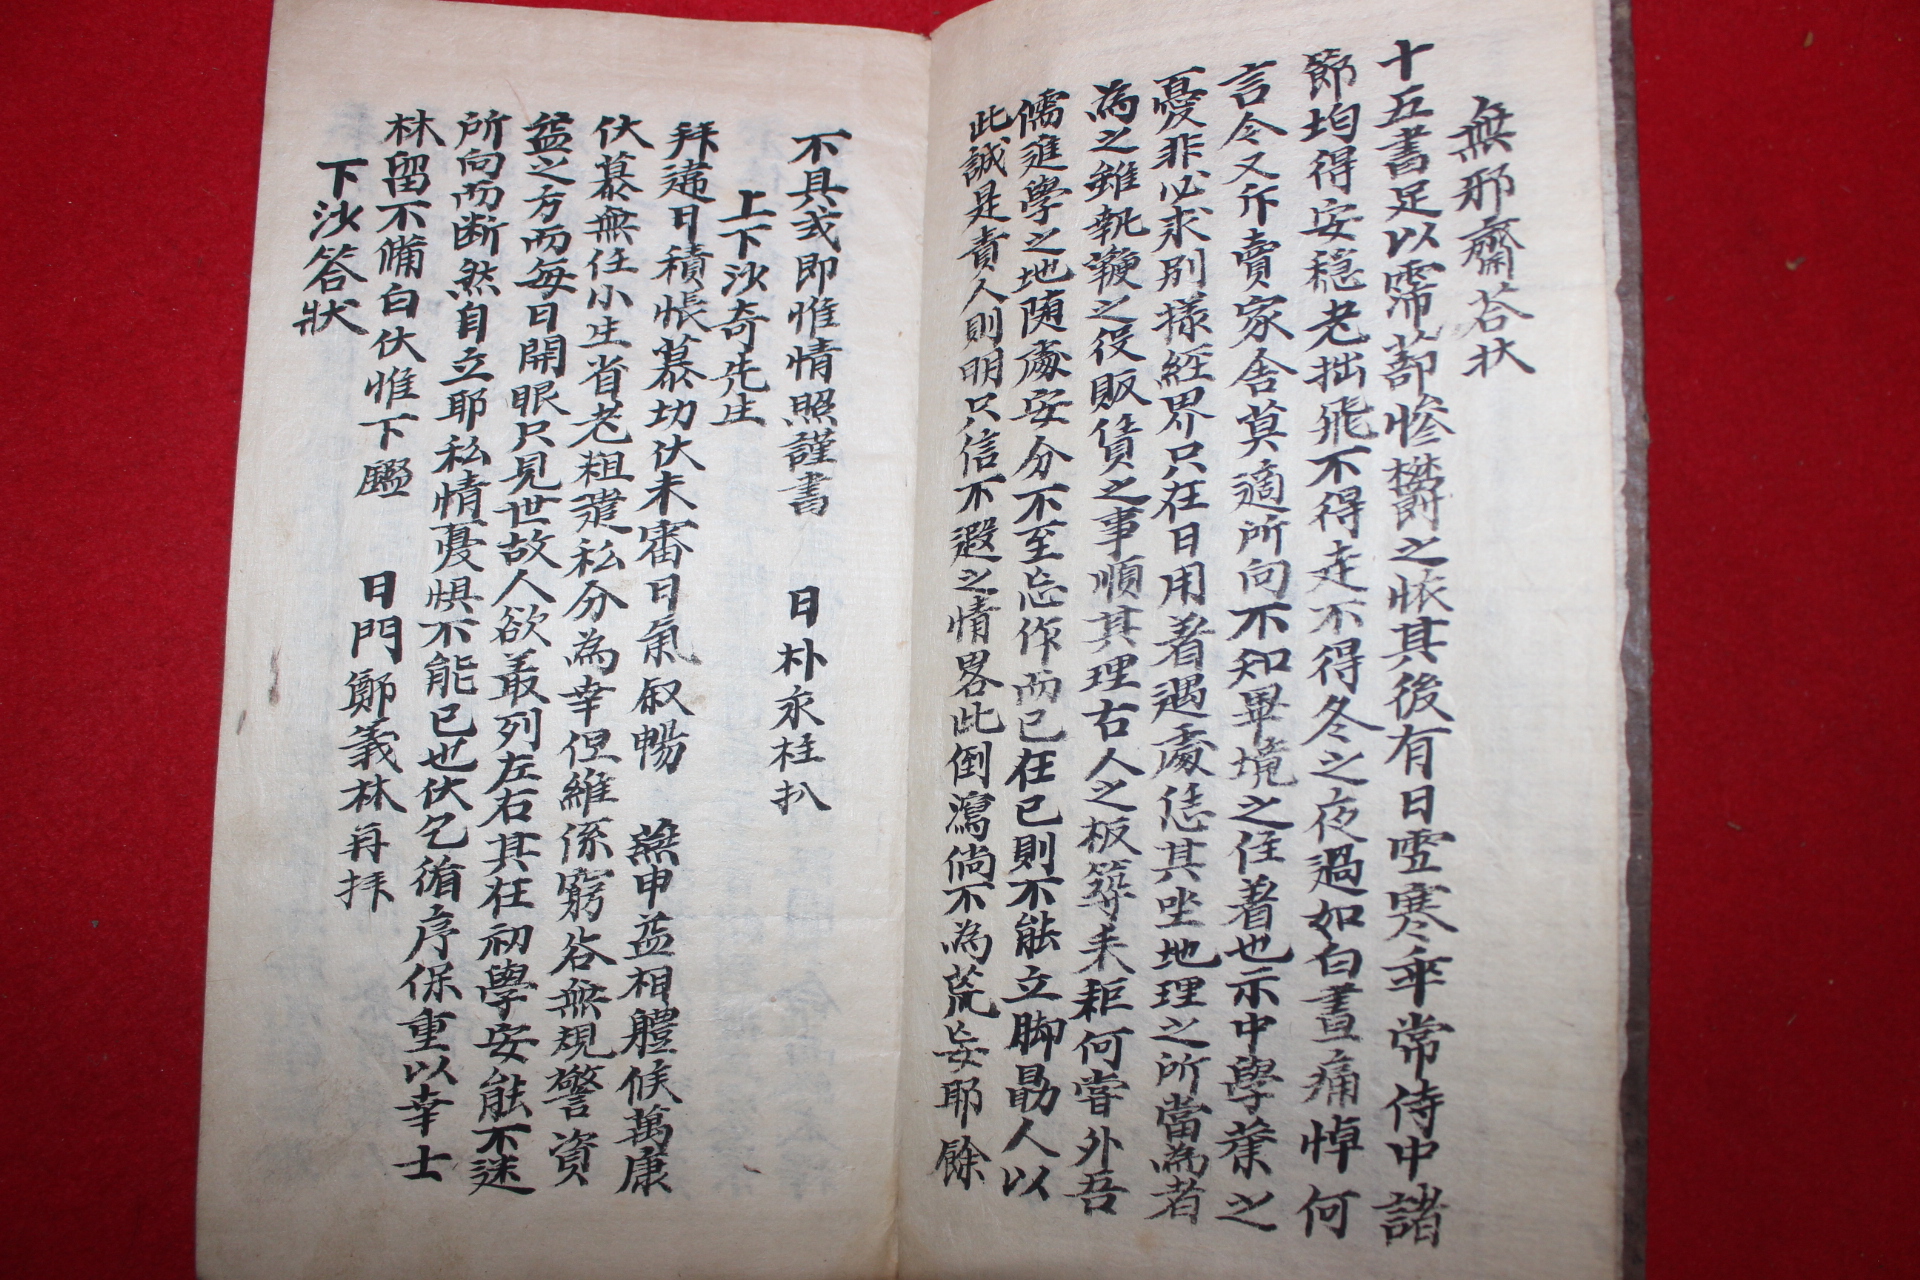 無邪齋答状
十五書足以霈蔀慘欝之悵其後有日雪寒乖常侍中諸
節均得安穏老拙飛不得走不得冬之夜過如白晝痛悼何
言今又斥賣家舎莫適所向不知畢境之住着也示中學業之
憂非必求別様経界只在日用着遇處恁其坐地理之所當為者
為之雖執鞭之役販貨之事順其理右人之板築耒耟何嘗外吾
儒進學之地随處安分不至忘作而已在已則不能立脚勗人以
此誠是責人則明只信不遐之情畧此倒瀉倘不為荒妄耶餘
不具或即惟情照謹書　日朴永柱扒
上下沙奇先生
拜違日積悵慕功伏未審日氣叙暢　無申益相體候萬康
伏慕無任小生省老粗遣私分為幸但維係窮谷無規警資
益之方而每日開眼只見世故人欲叢列左右其在初學安能不迷
所向而断然自立耶私情憂惧不能已也伏乞循序保重以幸士
林留不備白伏惟下鑑　日門鄭義林再拜
下沙答狀